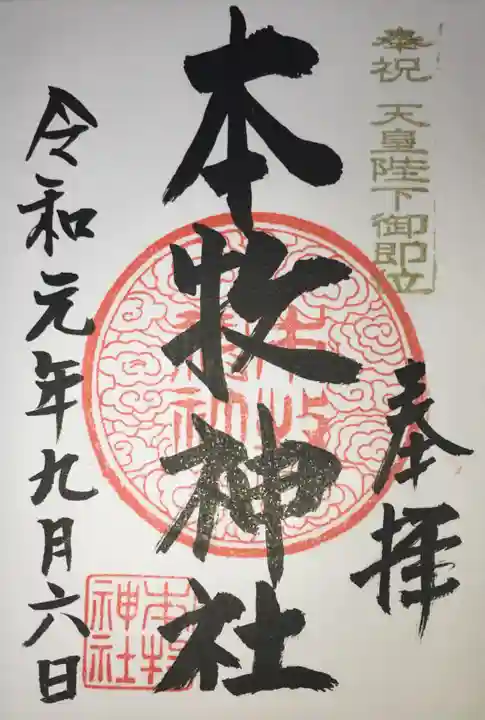 奉祝 天皇陛下御即位
奉拝
本牧神社
本牧神社
本牧神社
令和元年九月六日